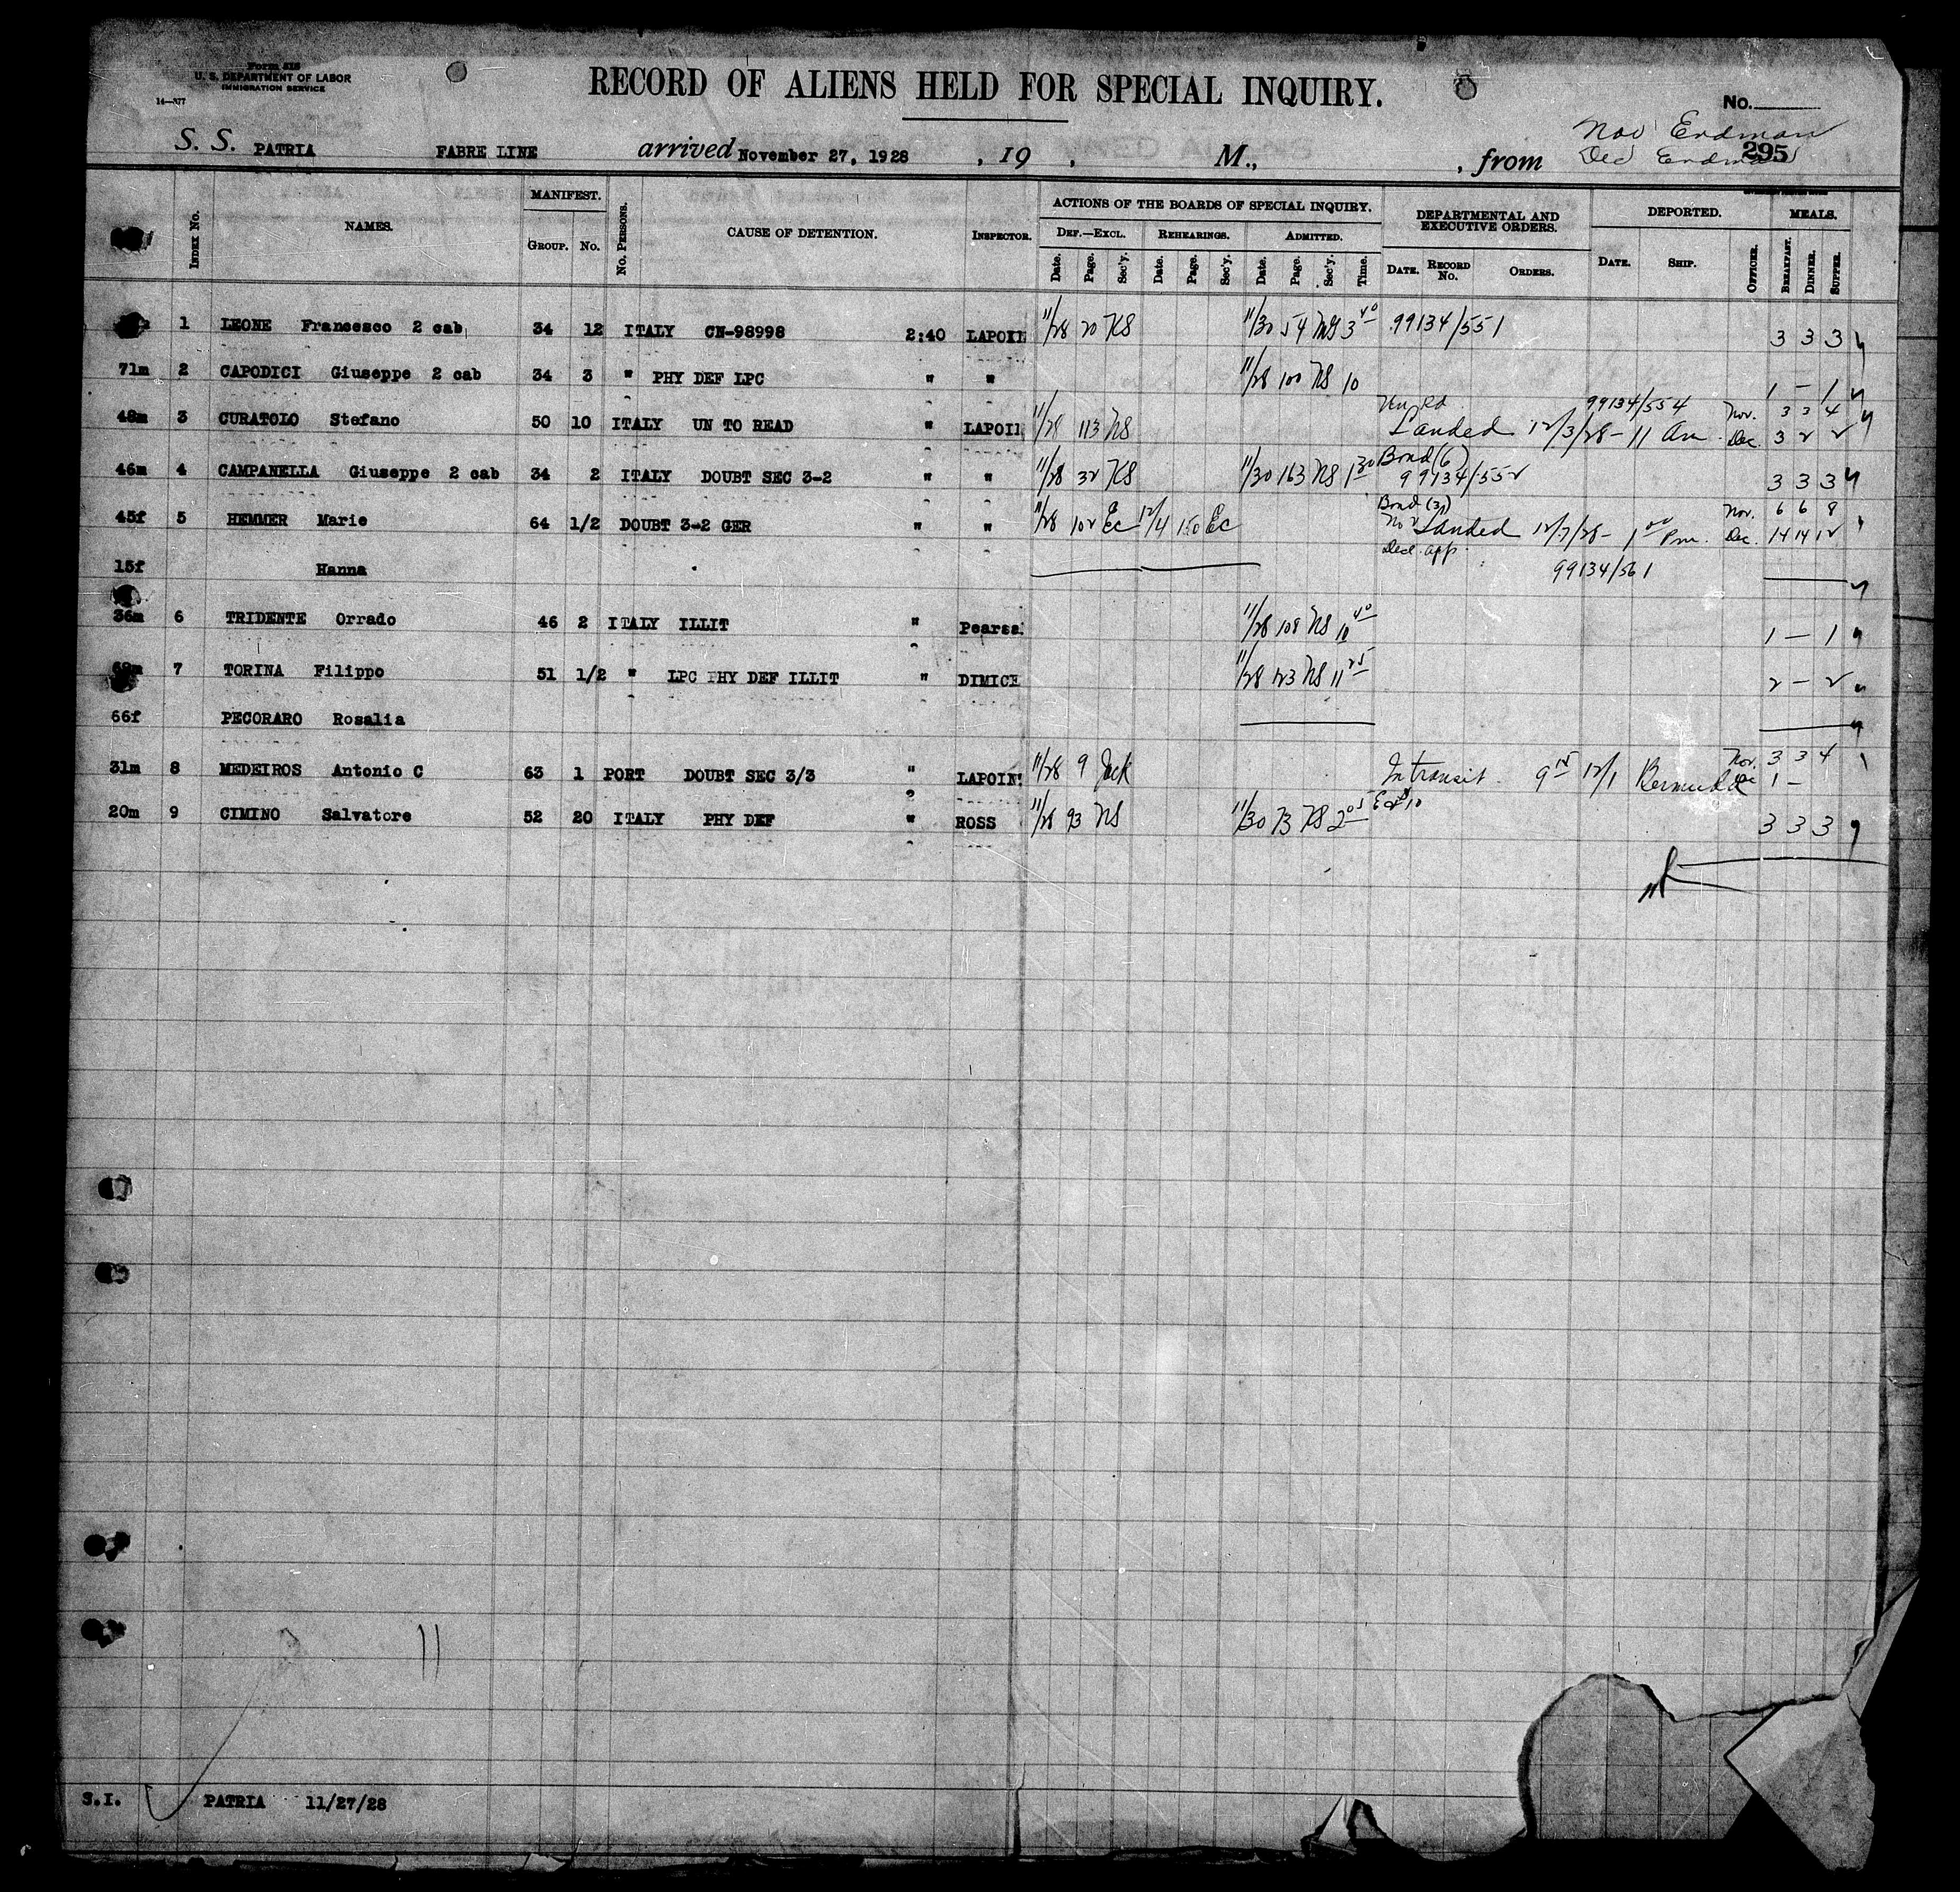 Form 518
U. S. DEPARTMENT OF LABOR
IMMIGRATION SERVICE
14—377
RECORD OF ALIENS HELD FOR SPECIAL INQUIRY.
No.
Nov Erdman
Dec Erdman 295
S. S. PATRIA FABRE LINE arrived November 27, 1928 , 19 , M., , from
INDEX No. NAMES. MANIFEST. GROUP. No. No. PERSONS. CAUSE OF DETENTION. INSPECTOR. ACTIONS OF THE BOARDS OF SPECIAL INQUIRY. DEF.—EXCL. Date. Page. Sec'y. REHEARINGS. Date. Page. Sec'y. ADMITTED. Date. Page. Sec'y. Time. DEPARTMENTAL AND EXECUTIVE ORDERS. DATE. RECORD No. ORDERS. DEPORTED. DATE. SHIP. OFFICER. MEALS. BREAKFAST. DINNER. SUPPER.
1 LEONE Francesco 2 cab 34 12 ITALY CN-98998 2:40 LAPOIN 11/28 20 KS 11/30 54 MG 3 40 99134/551 3 3 3
71m 2 CAPODICI Giuseppe 2 cab 34 3 " PHY DEF LPC " " 11/28 100 NS 10 1 — 1
99134/554 Nov. 3 3 4
48m 3 CURATOLO Stefano 50 10 ITALY UN TO READ " LAPOIN 11/28 113 NS Landed 12/3/28 — 11 Am Dec. 3 2 2
Bond (6)
46m 4 CAMPANELLA Giuseppe 2 cab 34 2 ITALY DOUBT SEC 3-2 " " 11/28 32 KS 11/30 163 NS 1 30 99134/552 3 3 3
Bond (3) Nov. 6 6 8
45f 5 HEMMER Marie 64 1/2 DOUBT 3-2 GER " " 11/28 102 Ec 12/4 150 Ec Landed 12/7/28 — 1 00 Pm. Dec. 14 14 12
Decl. app.
15f Hanna 99134/561
36m 6 TRIDENTE Orrado 46 2 ITALY ILLIT " Pearsa 11/28 108 NS 10 40 1 — 1
68m 7 TORINA Filippo 51 1/2 " LPC PHY DEF ILLIT " DIMICE 11/28 123 NS 11 25 2 — 2
66f PECORARO Rosalia
Nov. 3 3 4
31m 8 MEDEIROS Antonio C 63 1 PORT DOUBT SEC 3/3 " LAPOIN 11/28 9 Jack In transit 9 15 12/1 Bermuda Dec 1 —
20m 9 CIMINO Salvatore 52 20 ITALY PHY DEF " ROSS 11/28 93 NS 11/30 73 KS 2 05 3 3 3
11
S.I. PATRIA 11/27/28